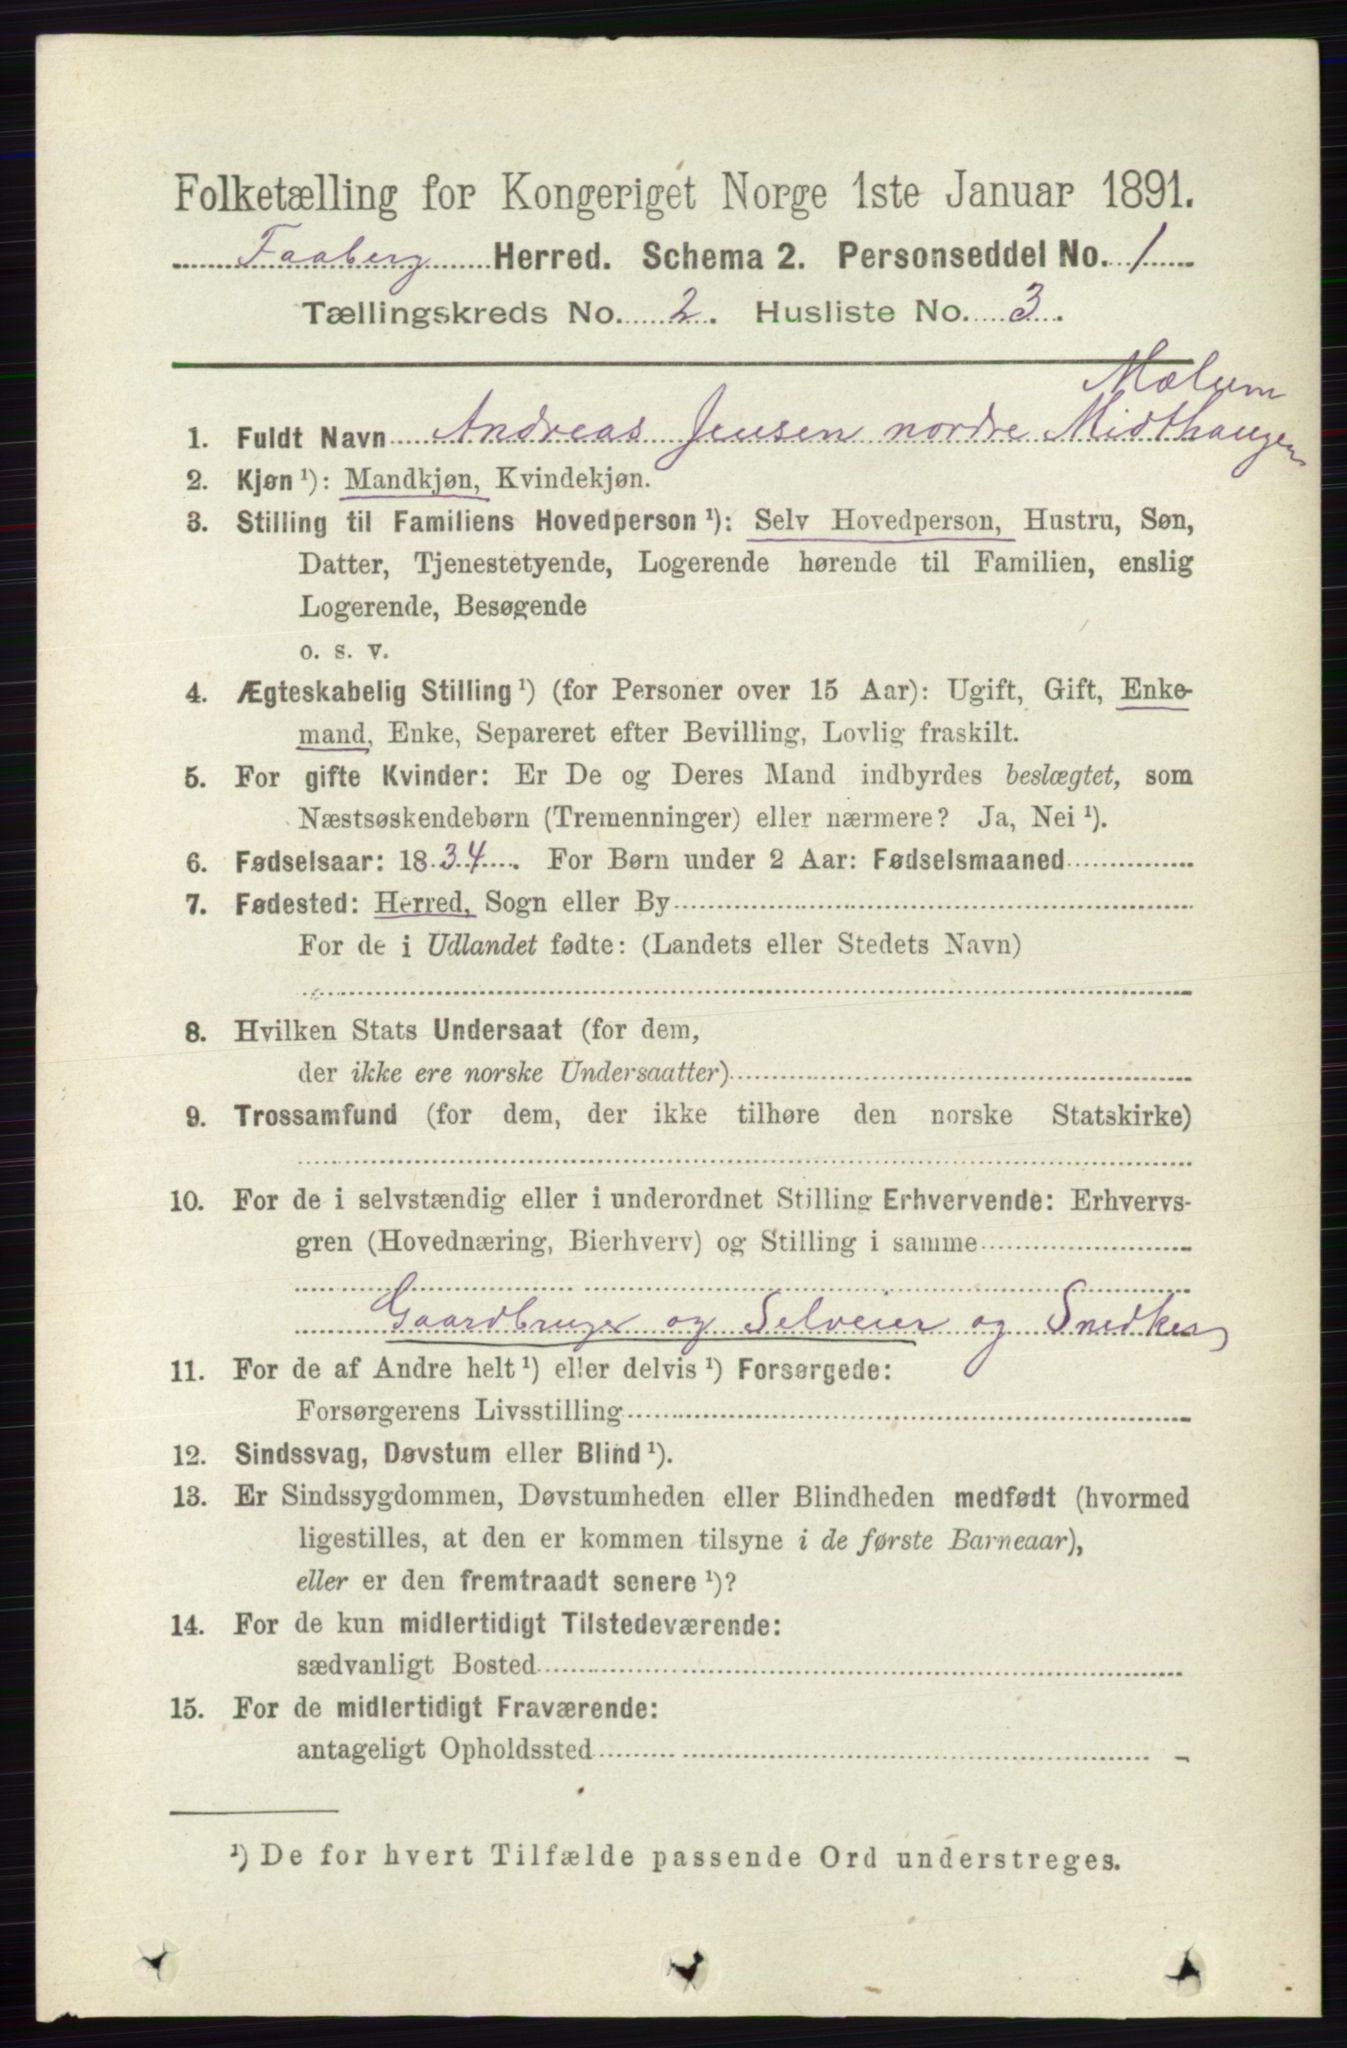 Folketælling for Kongeriget Norge 1ste Januar 1891.
Faaberg Herred. Schema 2. Personseddel No. 1
Tællingskreds No. 2. Husliste No. 3.
Mælum
1. Fuldt Navn Andreas Jensen nordre Midthaugen
2. Kjøn ¹): Mandkjøn, Kvindekjøn.
3. Stilling til Familiens Hovedperson ¹): Selv Hovedperson, Hustru, Søn,
Datter, Tjenestetyende, Logerende hørende til Familien, enslig
Logerende, Besøgende
o. s. v.
4. Ægteskabelig Stilling ¹) (for Personer over 15 Aar): Ugift, Gift, Enke-
mand, Enke, Separeret efter Bevilling, Lovlig fraskilt.
5. For gifte Kvinder: Er De og Deres Mand indbyrdes beslægtet, som
Næstsøskendebørn (Tremenninger) eller nærmere? Ja, Nei ¹).
6. Fødselsaar: 1834. For Børn under 2 Aar: Fødselsmaaned
7. Fødested: Herred, Sogn eller By
For de i Udlandet fødte: (Landets eller Stedets Navn)
8. Hvilken Stats Undersaat (for dem,
der ikke ere norske Undersaatter)
9. Trossamfund (for dem, der ikke tilhøre den norske Statskirke)
10. For de i selvstændig eller i underordnet Stilling Erhvervende: Erhvervs-
gren (Hovednæring, Bierhverv) og Stilling i samme
Gaardbruger og Selveier og Snedker
11. For de af Andre helt ¹) eller delvis ¹) Forsørgede:
Forsørgerens Livsstilling
12. Sindssvag, Døvstum eller Blind ¹).
13. Er Sindssygdommen, Døvstumheden eller Blindheden medfødt (hvormed
ligestilles, at den er kommen tilsyne i de første Barneaar),
eller er den fremtraadt senere ¹)?
14. For de kun midlertidigt Tilstedeværende:
sædvanligt Bosted
15. For de midlertidigt Fraværende:
antageligt Opholdssted
¹) De for hvert Tilfælde passende Ord understreges.